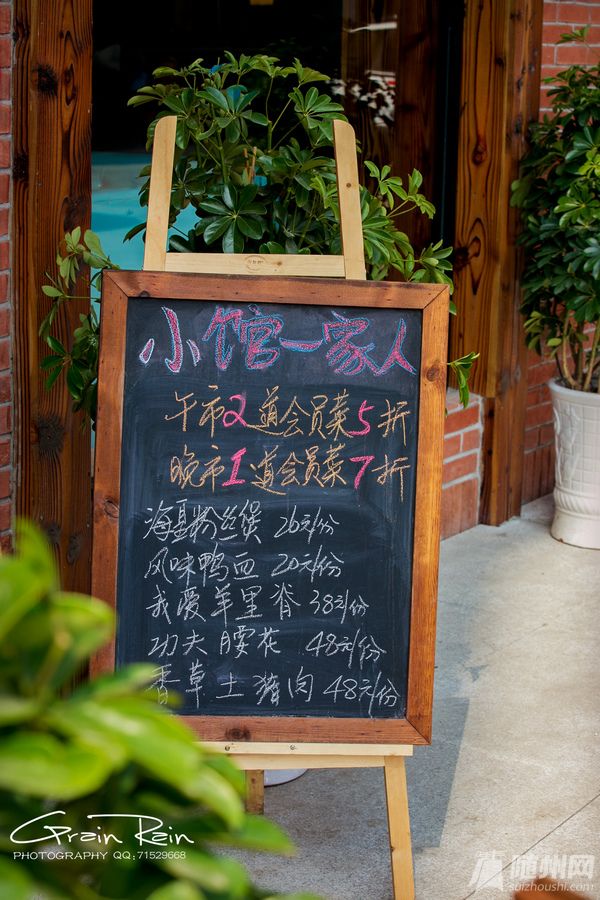 小馆一家人
午市2道会员菜5折
晚市1道会员菜7折
海鲜粉丝煲 26元/份
风味鸭血 20元/份
我爱羊里脊 38元/份
功夫腰花 48元/份
香草土猪肉 48元/份
Grain Rain
PHOTOGRAPHY QQ:71529668
随州网
suizhoushi.com